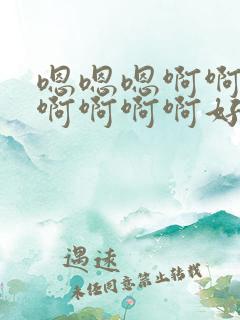 嗯嗯嗯啊啊
啊啊啊啊好
遇速
未经同意禁止转载